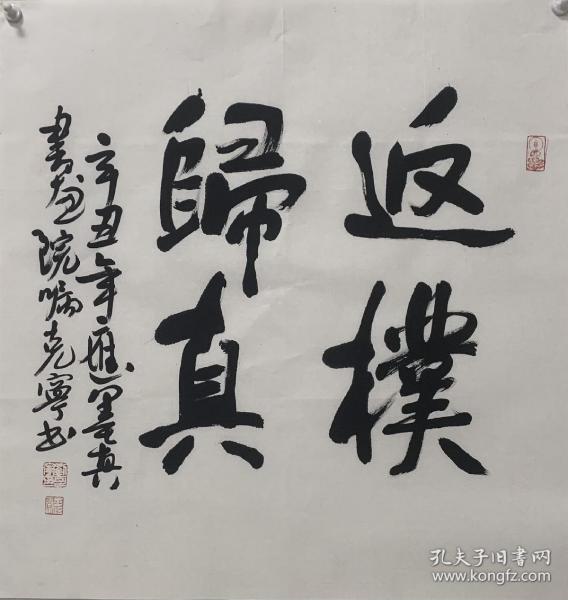 返樸
歸真
辛丑年應墨真
書画院嘱克寧书
孔夫子旧书网
www.kongfz.com